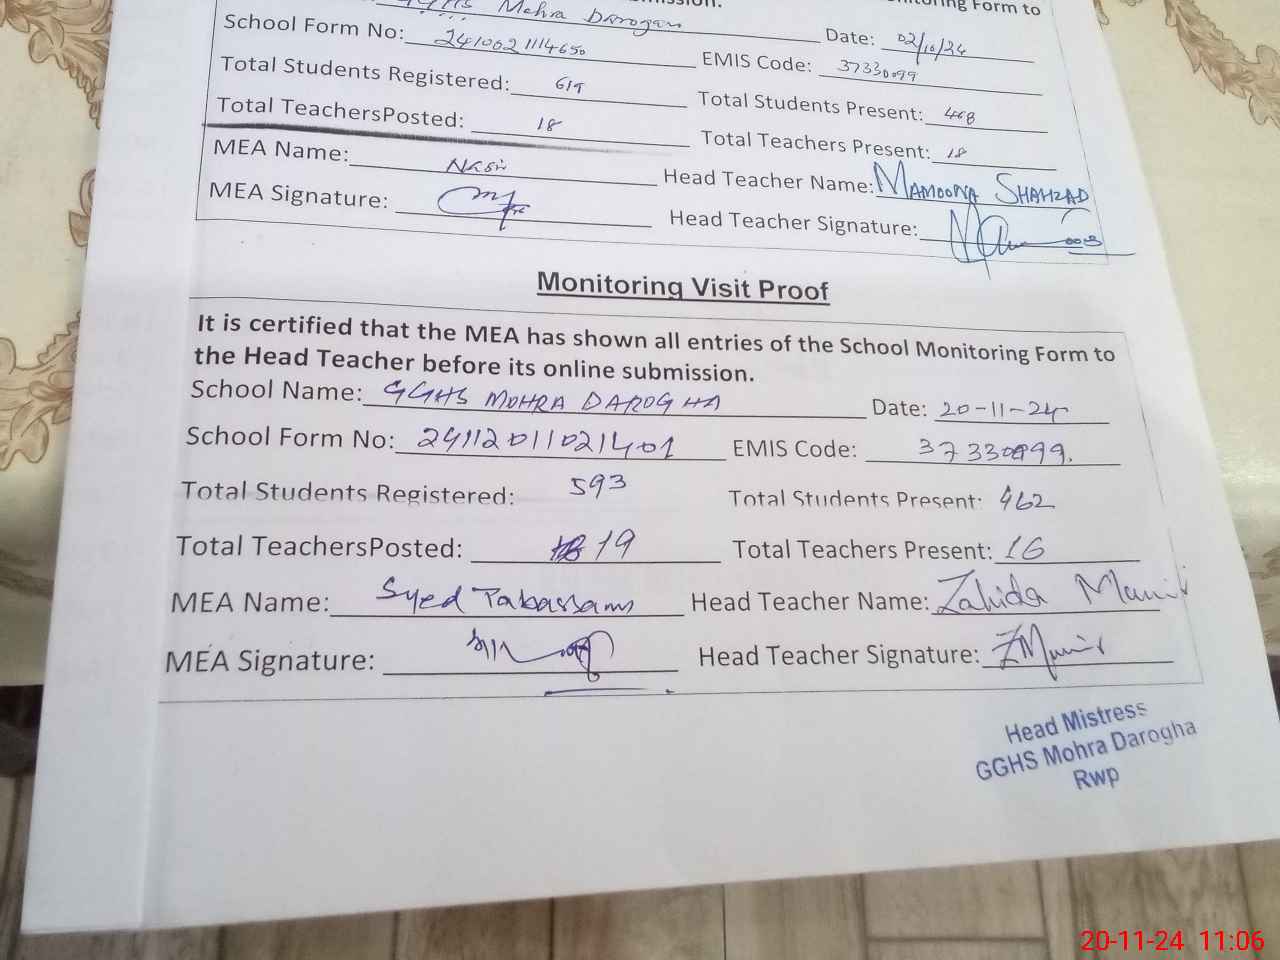 GGHS Mohra Darogan
Form to
School Form No: 2410021114650 Date: 02/10/24
Total Students Registered: 619 EMIS Code: 37330099
Total TeachersPosted: 18 Total Students Present: 468
MEA Name: Nasir Total Teachers Present: 18
MEA Signature: Head Teacher Name: MAMOONA SHAHZAD
Head Teacher Signature:
Monitoring Visit Proof
It is certified that the MEA has shown all entries of the School Monitoring Form to
the Head Teacher before its online submission.
School Name: GGHS MOHRA DAROGHA Date: 20-11-24
School Form No: 24112011021401 EMIS Code: 37330099.
Total Students Registered: 593 Total Students Present: 462
Total TeachersPosted: 19 Total Teachers Present: 16
MEA Name: Syed Tabassam Head Teacher Name: Zahida Munir
MEA Signature: Head Teacher Signature: ZMunir
Head Mistress
GGHS Mohra Darogha
Rwp
20-11-24 11:06